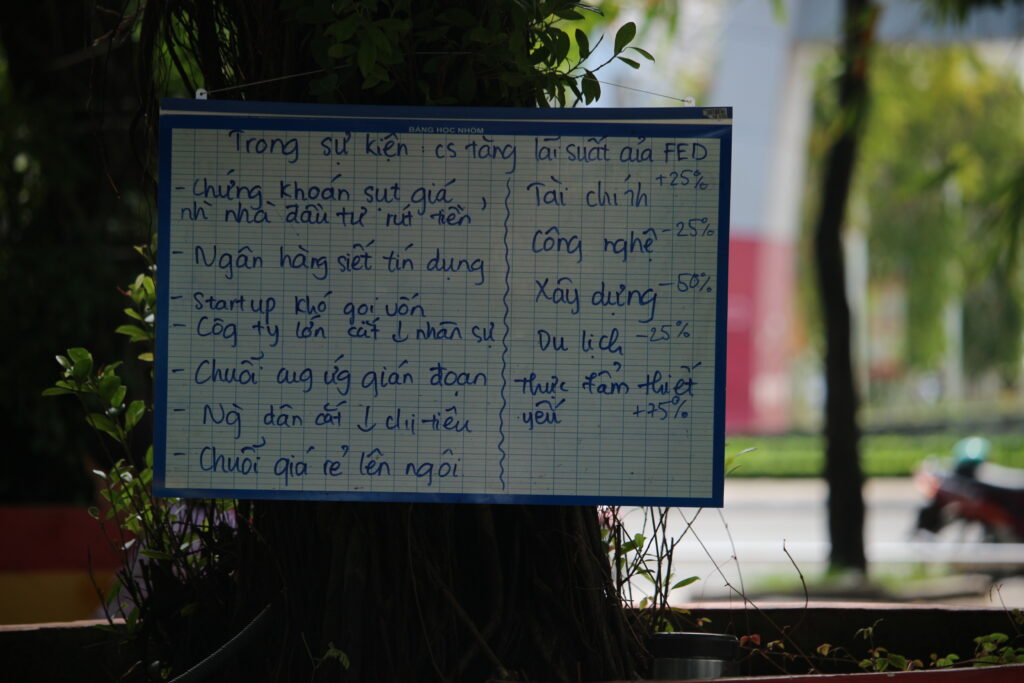 BẢNG HỌC NHÓM
Trong sự kiện : cs tăng lãi suất của FED
- Chứng khoán sụt giá,
nhì nhà đầu tư rút tiền
- Ngân hàng siết tín dụng
- Startup khó gọi vốn
- Côg ty lớn cắt ↓ nhân sự
- Chuỗi cug ứg gián đoạn
- Ng dân cắt ↓ chi tiêu
- Chuỗi giá rẻ lên ngôi
Tài chính +25%
Công nghệ -25%
Xây dựng -50%
Du lịch -25%
thực phẩm thiết
yếu +75%